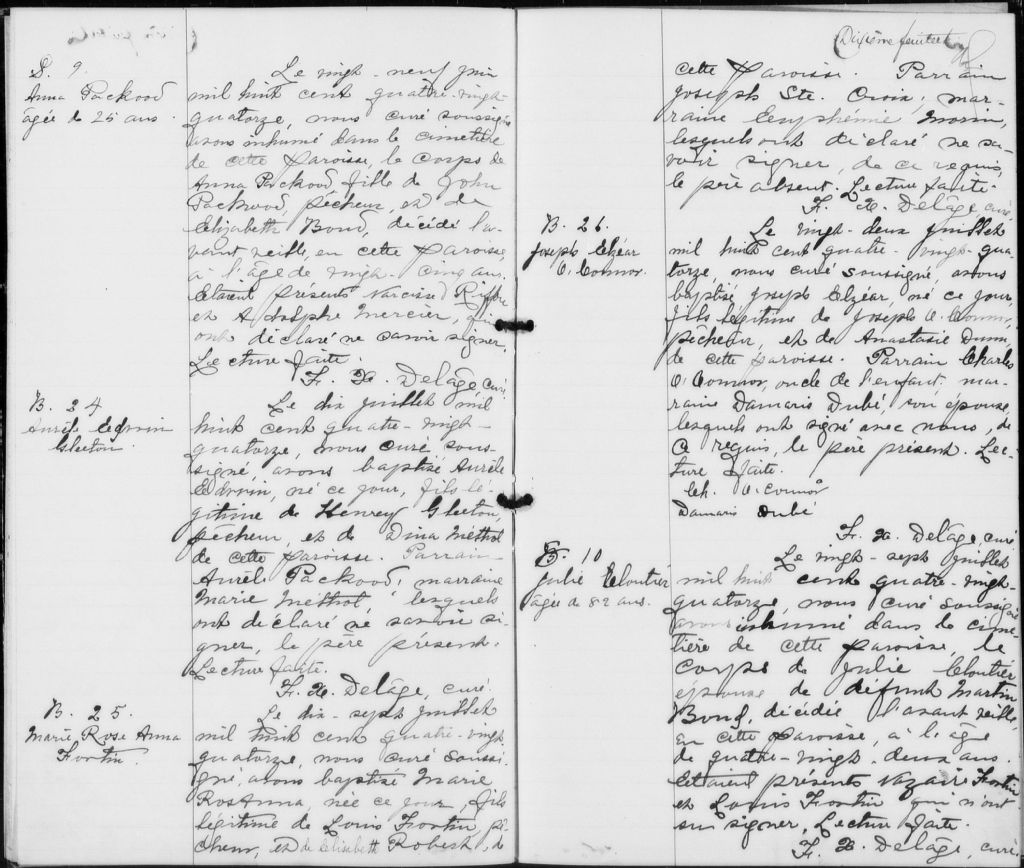 S. 9.
Anna Packood
agée de 25 ans.
Le vingt-neuf juin
mil huit cent quatre-vingt-
quatorze, nous curé soussigné
avons inhumé dans le cimetière
de cette paroisse, le corps de
Anna Packood, fille de John
Packwood, pêcheur, et de
Elizabeth Bond, décédé l'a-
vant veille, en cette paroisse,
à l'âge de vingt-cinq ans.
Etaient présents Narcisse
et Adolphe Mercier, qui
ont déclaré ne savoir signer.
Lecture faite.
F. X. Delâge, curé.
B. 24
Aurèle Edwin
Gleeton
Le dix juillet mil
huit cent quatre-vingt-
quatorze, nous curé sous-
signé avons baptisé Aurèle
Edwin, né ce jour, fils lé-
gitime de Henrey Gleeton,
pêcheur, et de Dina Méthot
de cette paroisse. Parrain
Aurèle Packood; marraine
Marie Méthot, lesquels
ont déclaré ne savoir si-
gner, le père présent.
Lecture faite.
F. X. Delâge, curé.
B. 25.
Marie, Rose Anna
Fortin.
Le dix-sept juillet
mil huit cent quatre-vingt
quatorze, nous curé soussi-
gné, avons baptisé Marie
RosAnna, née ce jour, fils
légitime de Louis Fortin, pê-
cheur, et de Elisabeth Robert, de
(Dixième feuillet)
cette paroisse. Parrain
Joseph Ste. Croix; mar-
raine Euphémie Morin,
lesquels ont déclaré ne sa-
voir signer, de ce requis,
le père absent. Lecture faite.
F. X. Delâge, curé.
B. 26.
Joseph Elzéar
O. Connor.
Le vingt-deux juillet
mil huit cent quatre-vingt-qua-
torze, nous curé soussigné, avons
baptisé Joseph Elzéar, né ce jour,
fils légitime de Joseph O. Connor,
pêcheur, et de Anastasie Dunn,
de cette paroisse. Parrain Charles
O. Connor, oncle de l'enfant; mar-
raine Damaris Dubé, son épouse,
lesquels ont signé avec nous, de
ce requis, le père présent. Lec-
ture faite.
Ch. O. Connor
Damaris Dubé
F. X. Delâge, curé
S. 10
Julie Cloutier
âgée de 82 ans.
Le vingt-sept juillet
mil huit cent quatre-vingt-
quatorze, nous curé soussigné
avons inhumé dans le cime-
tière de cette paroisse, le
corps de Julie Cloutier
épouse de défunt Martin
Bond, décédée l'avant veille,
en cette paroisse, à l'âge
de quatre-vingt-deux ans.
Etaient présents Nazaire Fortin
et Louis Fortin qui n'ont
su signer, Lecture faite.
F. X. Delâge, curé.